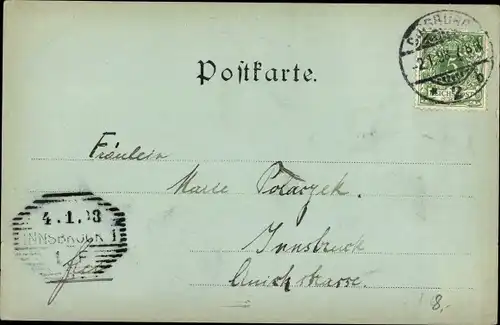 Postkarte.
Fräulein
Marie Polaczek.
Innsbruck
Anichstrasse.
4.1.98
INNSBRUCK 1
8,-